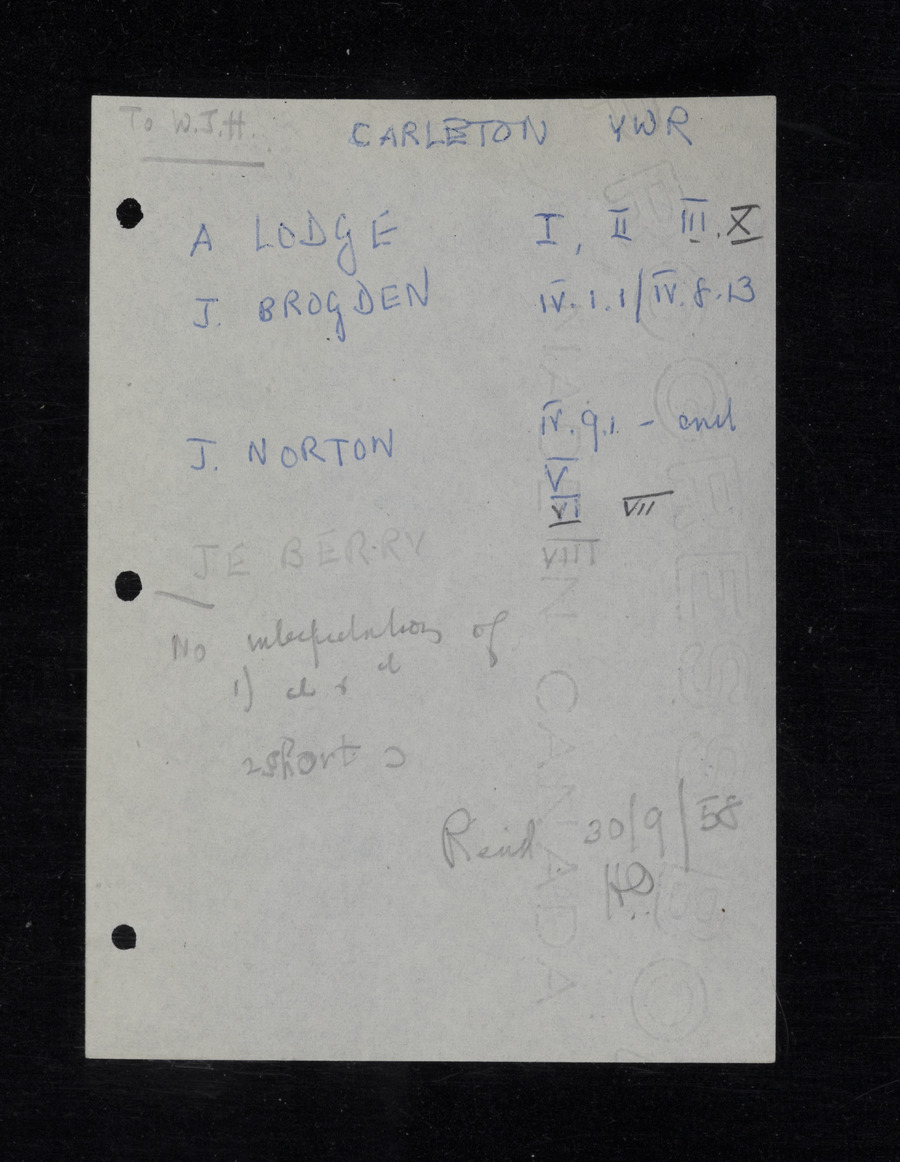 To W.J.H.
CARLETON YWR
A LODGE I, II III. X
J. BROGDEN IV.1.1/IV.8.13
J. NORTON IV.9.1. - end
V
VI VII
JE BERRY VIII
No interpretations of
1)
2 short
Recd 30/9/58
CANADA